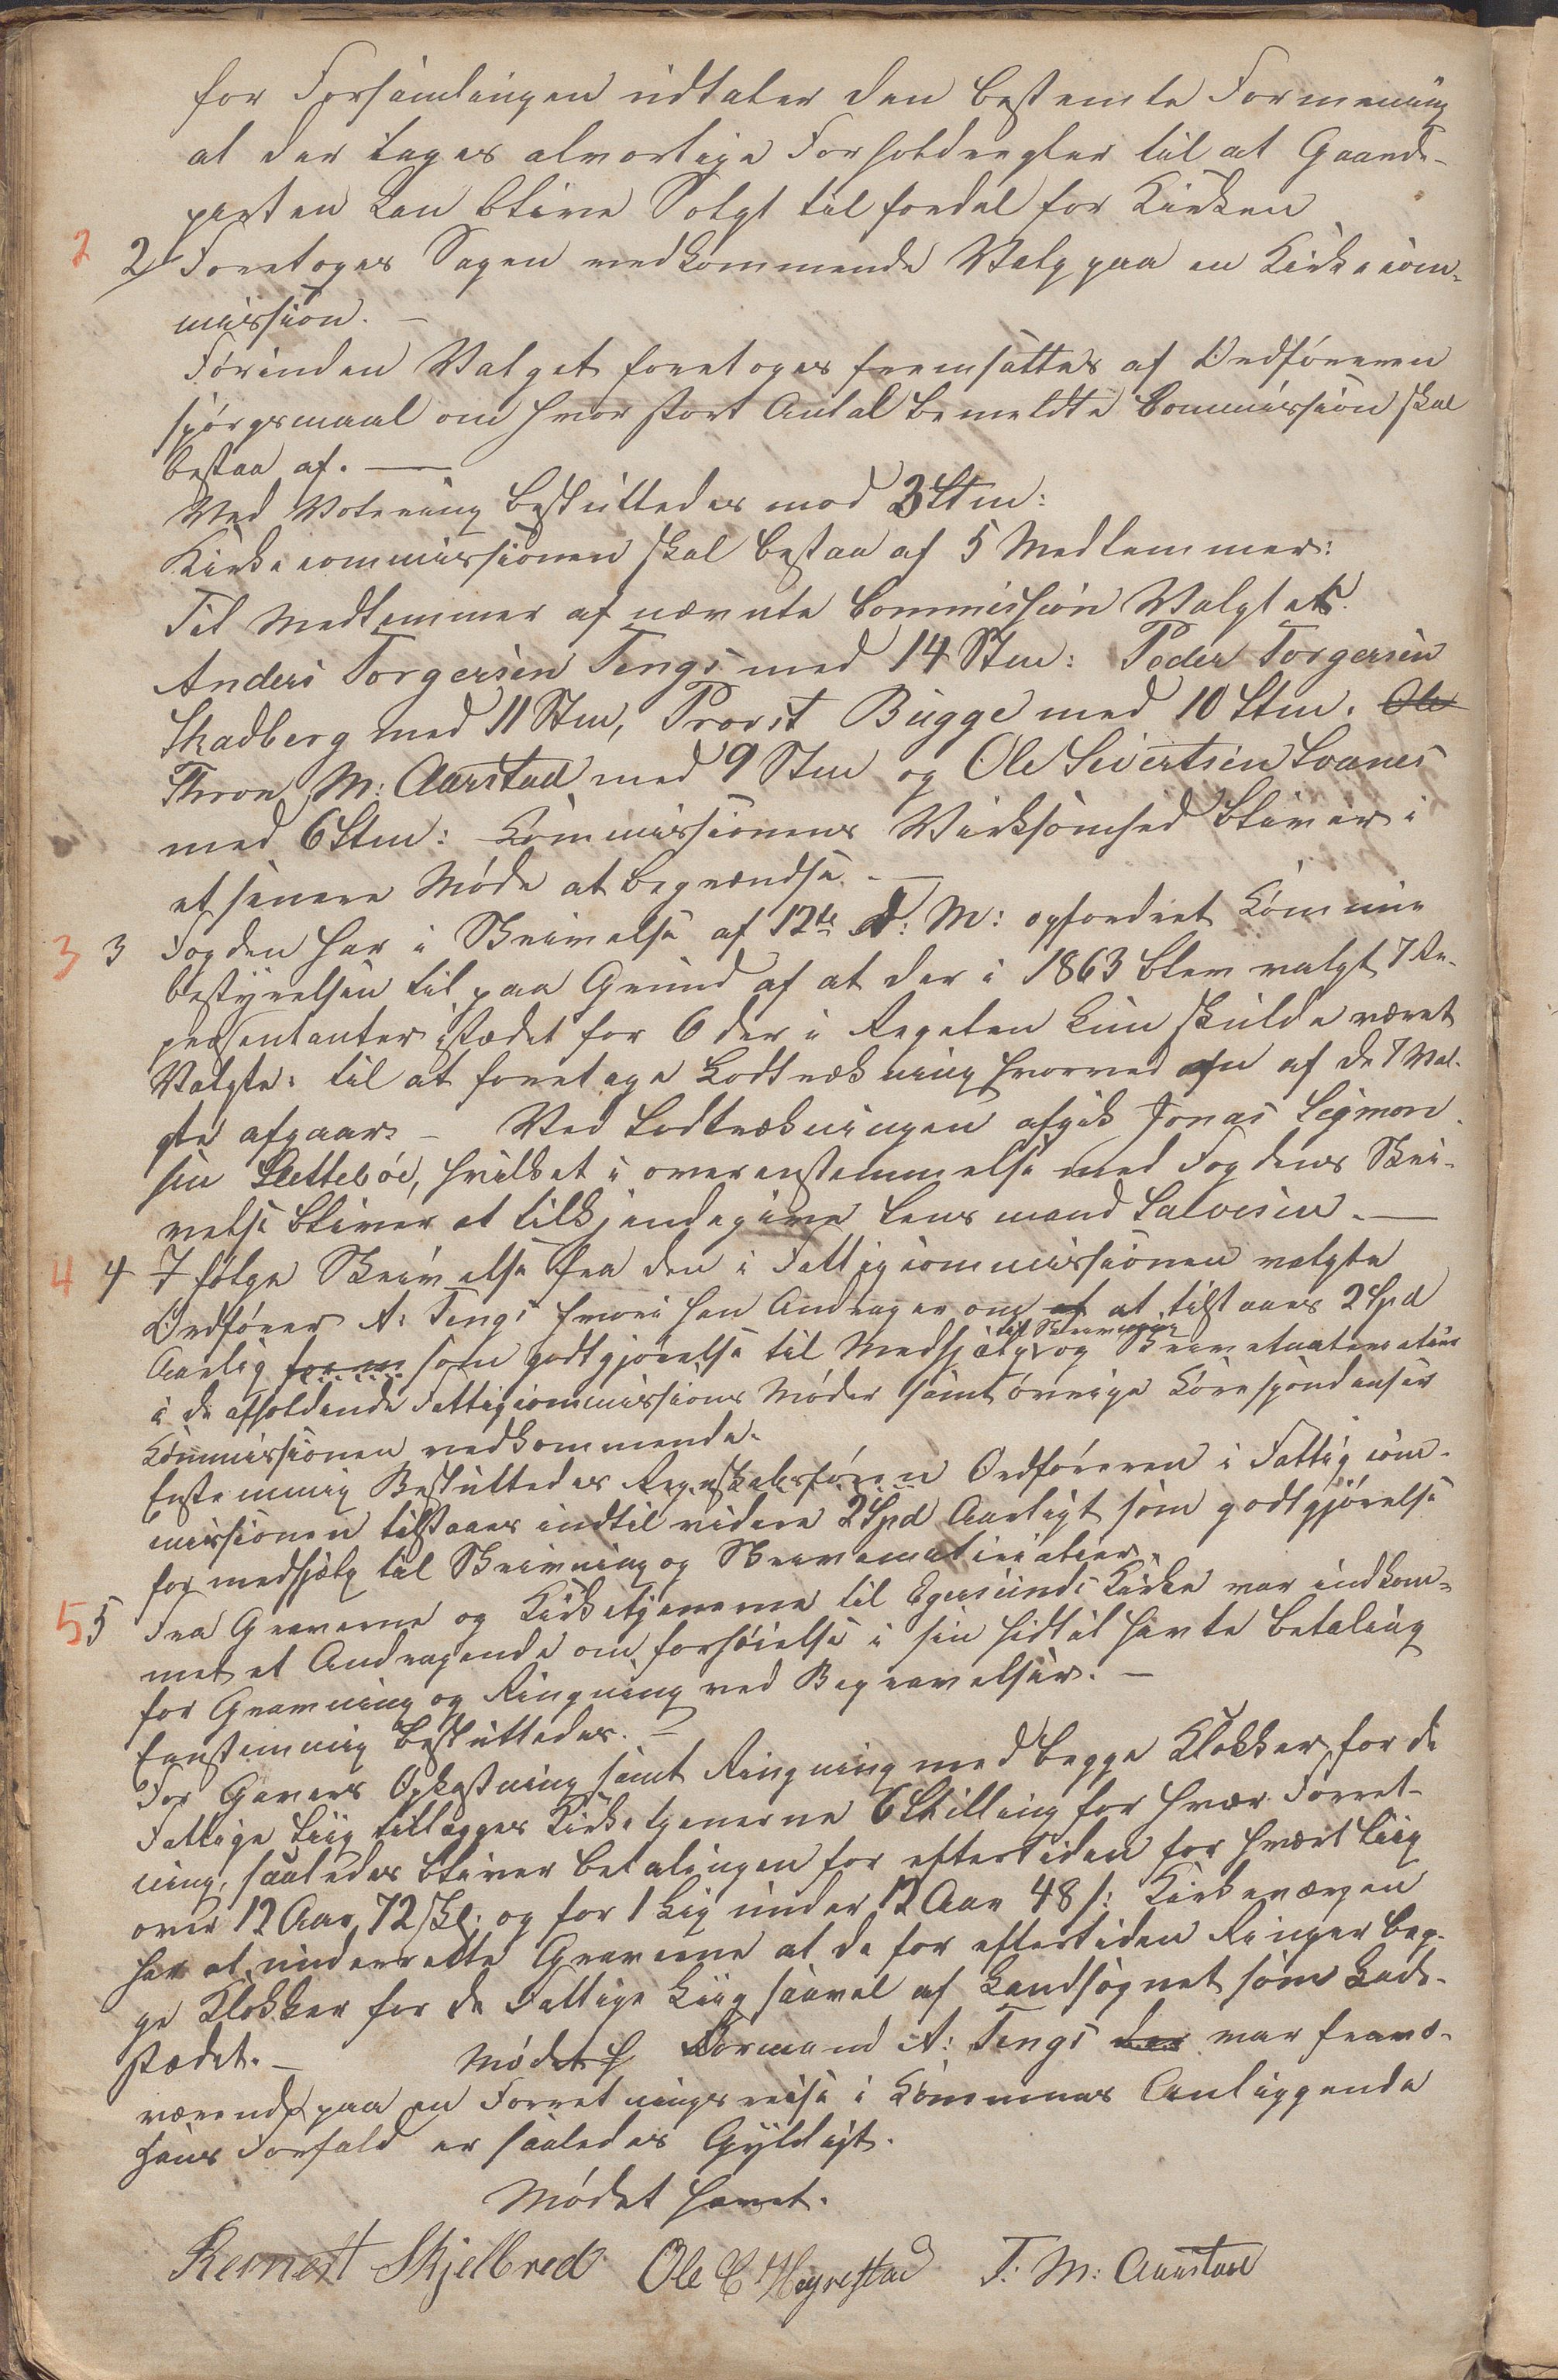 for Forsamlingen udtaler den bestemte Formening
at der tages alvorlige Forholdsregler til at Gaards-
parten kan blive Solgt til fordel for Kirken
2 2/ Foretoges Sagen vedkommende Valg paa en Kirkecom-
mission. —
Forinden Valget foretoges fremsattes af Ordføreren
spørgsmaal om hvor stort Antal bemeldte Commission skal
bestaa af. —
Ved Votering besluttedes mod 3 Stm:
Kirkecommissionen skal bestaa af 5 Medlemmer:
Til Medlemmer af nævnte Commission Valgtes.
Anders Torgersen Tengs med 14 Stm: Peder Torgersen
Skadberg med 11 Stm, Provst Bugge med 10 Stm. Ole
Thron M: Aarstad med 9 Stm og Ole Sivertsen Svanes
med 6 Stm: Commissionens Virksomhed bliver i
et senere Møde at begrændse. —
3 3 Fogden har i Skrivelse af 12te d: M: opfordret Commune
bestyrelsen til paa Grund af at der i 1863 blev valgt 7 Re-
præsentanter istædet for 6 der i Regelen kun skulde været
Valgte: til at foretage Lodtrækning hvorved en af de 7 Val-
gte afgaar. — Ved Lodtrækningen afgik Jonas Sigmon-
sen Slettebøe, hvilket i overenstemmelse med Fogdens Skri-
velse bliver at tilkjendegive Lensmand Salvesen. —
4 4 I følge Skrivelse fra den i Fattigcommissionen valgte
Ordfører A: Tengs hvori han Andrager om at at tilstaaes 2 Spd
Aarlig som godtgjørelse til Medhjælp til Skrivning og Skrivematerialier
i de afholdende Fattigcommissions Møder samt øvrige Corespondanser
Commissionen vedkommende.
Enstemmig Besluttedes Regnskabsføren Ordføreren i Fattigcom-
missionen tilstaaes indtil videre 2 Spd Aarligt som godtgjørelse
for medhjælp til Skrivning og Skrivematerialier.
5 5 Fra Graverne og Kirketjenerne til Egersunds Kirke var indkom-
met et Andragende om forhøielse i sin hidtil havte betaling
for Gravning og Ringning ved Begravelser. —
Eenstemmig besluttedes. —
For Gravers Opkastning samt Ringning med begge Klokker for de
Fattige Liig tillægges Kirketjenerne 6 Skilling for hvær Forret-
ning, saaledes bliver betalingen for eftertiden for hvært Liig
over 12 Aar 72 Skl. og for 1 Lig under 12 Aar 48 s: Kirkeværgen
har at underrette Graverne at de for eftertiden Ringer beg-
ge Klokker for de Fattige Liig saavel af Landsognet som Lade-
stædet. — Mødets Formand A: Tengs der var fravæ-
rende paa en Forretningsreise i Communes Anliggende
hans Forfald er saaledes Gyldigt.
Mødet hævet.
Reinert Skjelbred Ole C Høyrestad T. M: Aarstad